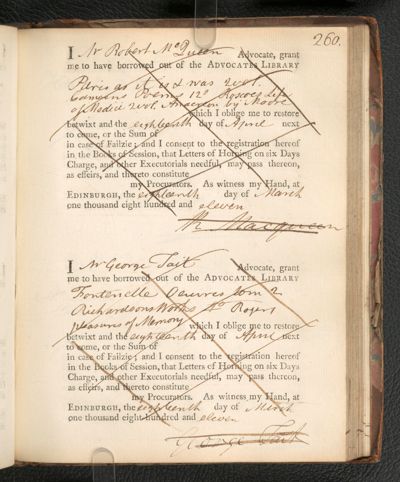 260.
I Mr Robert McQueen Advocate, grant
me to have borrowed out of the ADVOCATES LIBRARY
as it is & was 2 vol.
Camoens Poems 12o Roscoes Life
of Medici 2 vol. Anderson by Moore
which I oblige me to restore
betwixt and the eighteenth day of April next
to come, or the Sum of
in case of Failzie; and I consent to the registration hereof
in the Books of Session, that Letters of Horning on six Days
Charge, and other Executorials needful, may pass thereon,
as effeirs, and thereto constitute
my Procurators. As witness my Hand, at
EDINBURGH, the eighteenth day of March
one thousand eight hundred and eleven
R. Macqueen
I Mr George Tait Advocate, grant
me to have borrowed out of the ADVOCATES LIBRARY
Fontenelle Oeuvres tom 2
Richardsons Works 4to Rogers
pleasures of Memory which I oblige me to restore
betwixt and the eighteenth day of April next
to come, or the Sum of
in case of Failzie; and I consent to the registration hereof
in the Books of Session, that Letters of Horning on six Days
Charge, and other Executorials needful, may pass thereon,
as effeirs, and thereto constitute
my Procurators. As witness my Hand, at
EDINBURGH, the eighteenth day of March
one thousand eight hundred and eleven
George Tait